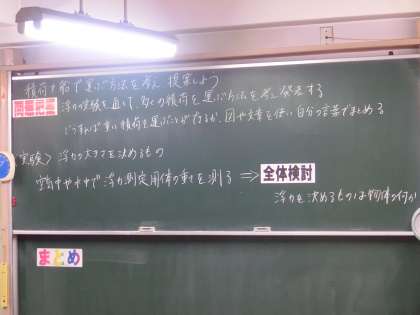 積荷を船で運ぶ方法を考え 提案しよう
問題把握 浮力の実験を通して、多くの積荷を運ぶ方法を考え発表する
どうすれば重い積荷を運ぶことができるか、図や文章を使い自分の言葉でまとめる
実験> 浮力の大きさを決めるもの
空気中や水中で浮力測定用体の重さを測る ⇒ 全体検討
浮力を決めるものは物体の何か
まとめ